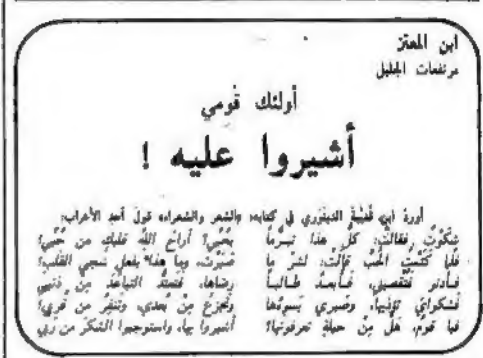 ابن المعتز
مرتفعات الجليل
أولئك قومي
أشيروا عليه !
أورد ابن قتيبة الدينوري في كتابه «الشعر والشعراء» قول أحد الأعراب:
شكوت، فقالت: كل هذا تبرماً بحبي! أراح الله قلبك من حبي!
فلما كتمت الحب قالت: لشد ما صبرت، وما هذا بفعل شجي القلب!
فأدنو فتقصيني، فأبعد طالباً رضاها، فتعتد التباعد من ذنبي
فشكواي تؤذيها، وصبري يسوءها وتجزع من بعدي، وتنفر من قربي!
فيا قوم، هل من حيلة تعرفونها؟ أشيروا بها، واستوجبوا الشكر من ربي